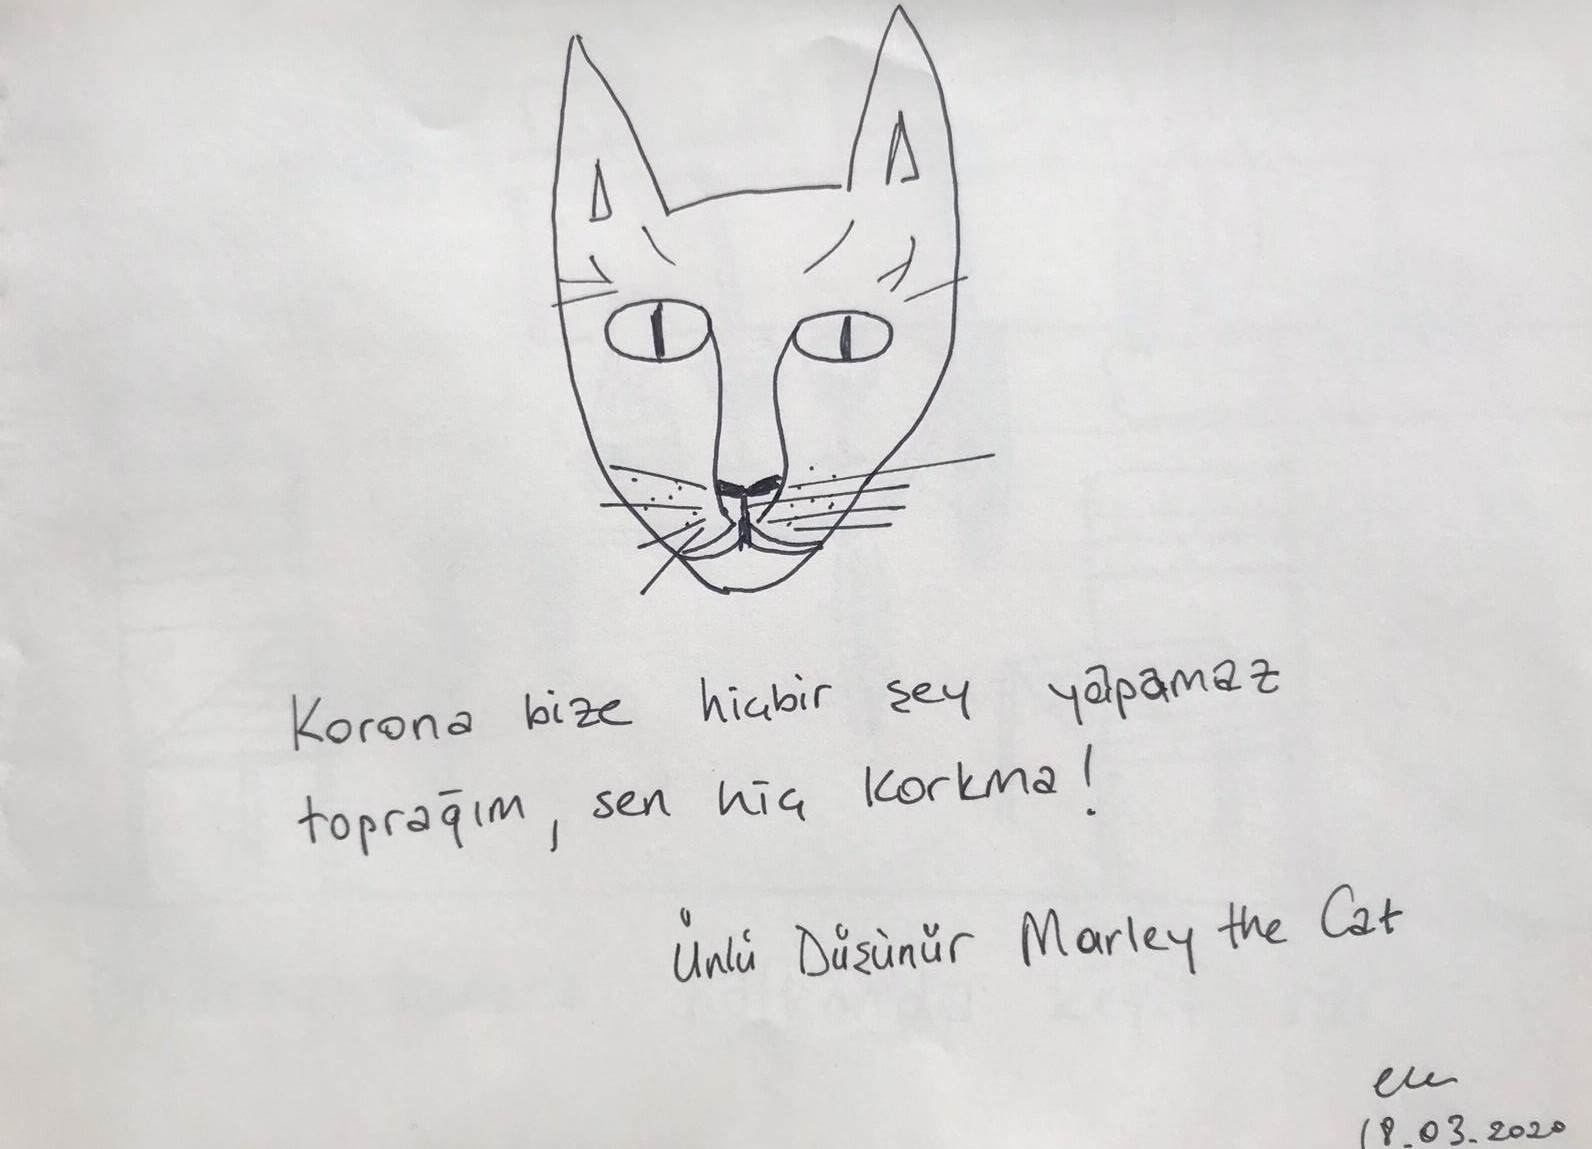 Korona bize hiçbir şey yapamaz
toprağım, sen hiç korkma!
Ünlü Düşünür Marley the Cat
18.03.2020